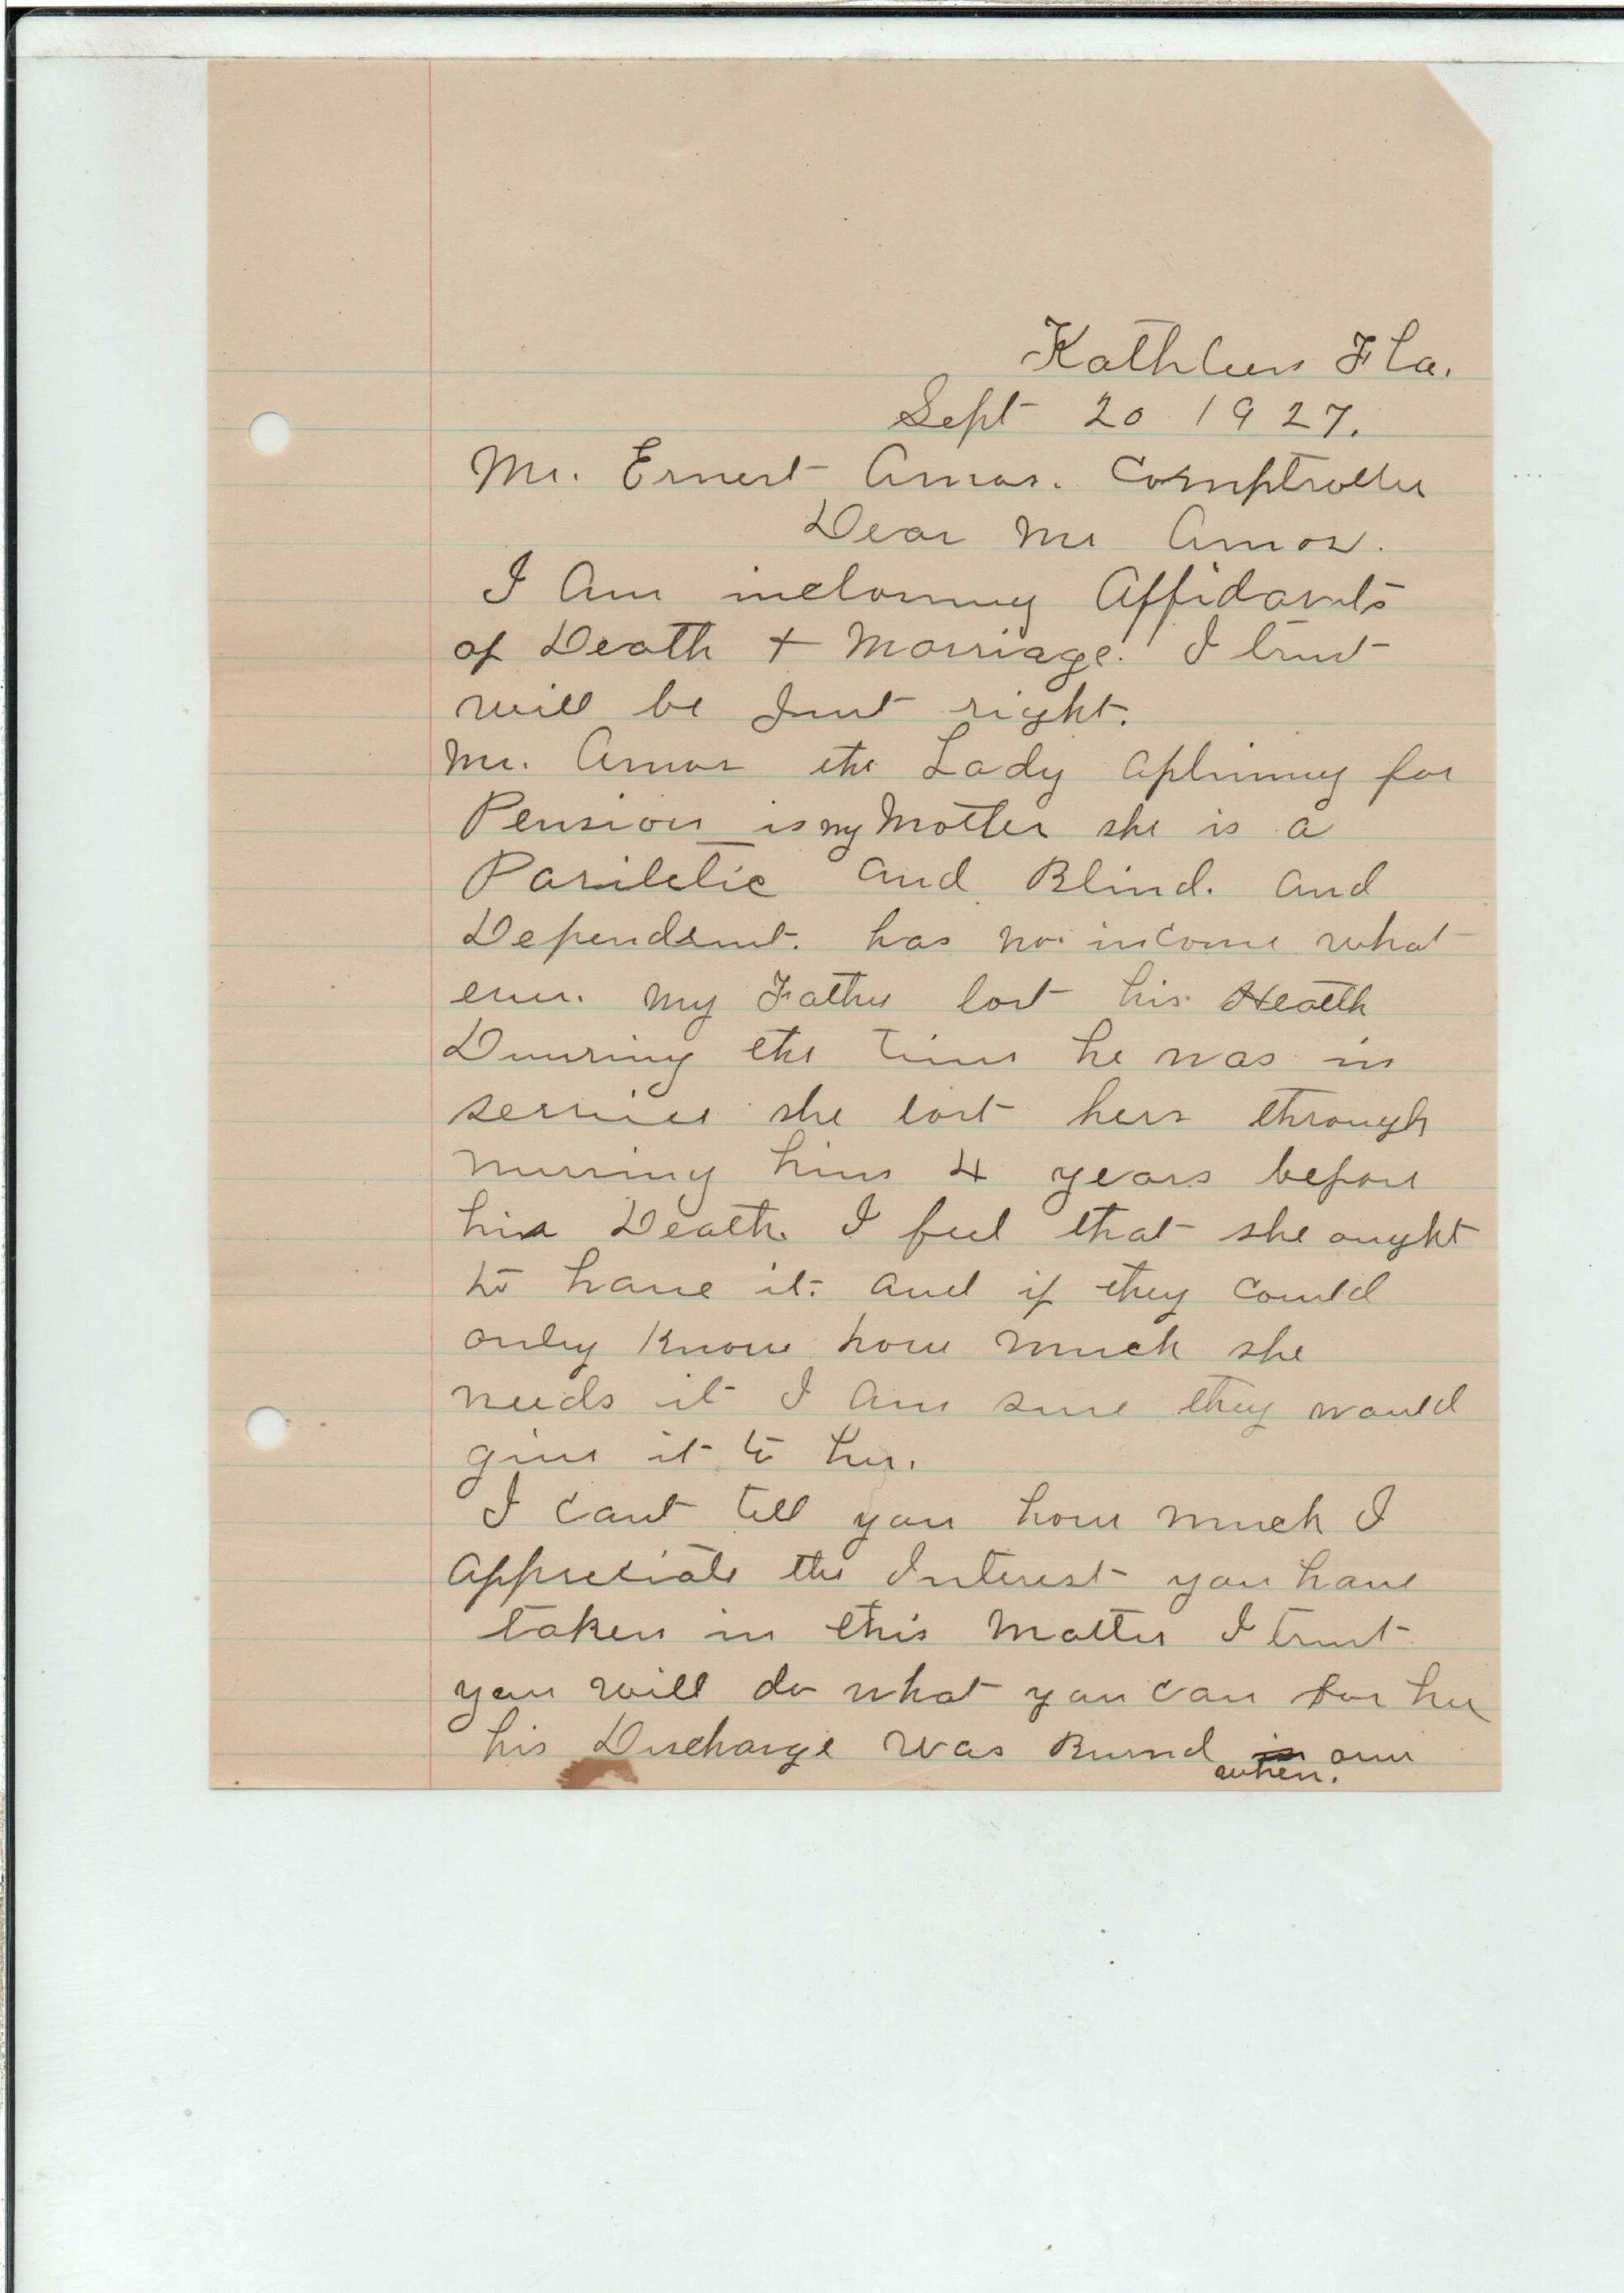 Kathleen Fla.
Sept 20 1927.
Mr. Ernest Amos. Comptroller
Dear Mr Amos.
I Am inclosing Affidavits
of Death + Marriage. I trust
will be Just right.
Mr. Amos the Lady Aplining for
Pension is my Mother she is a
Pariletic and Blind. and
Dependent. has no income what
ever. My Father lost his Health
Duuring the time he was in
service she lost hers through
nursing him 4 years before
his Death. I feel that she ought
to have it. and if they could
only Know how much she
needs it I Am sure they would
give it to her.
I cant tell you how much I
appreciate the Interest you have
taken in this Matter I trust
you will do what you can for her
his Discharge was Burnd in our
when.